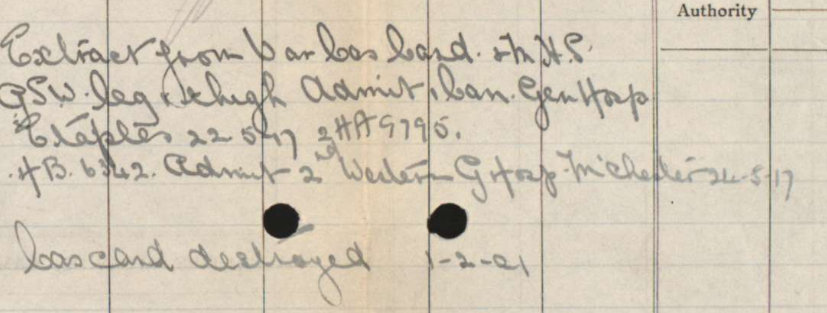 Authority
Extract from War Cas Card. & M.H.S.
GSW. leg & thigh Admit 1 Can. Gen Hosp
Etaples 22-5-17 2HA 9795.
HB. 6342. Admit 2nd Western G Hosp. M'chester 24-5-17
Cas card destroyed 1-2-21